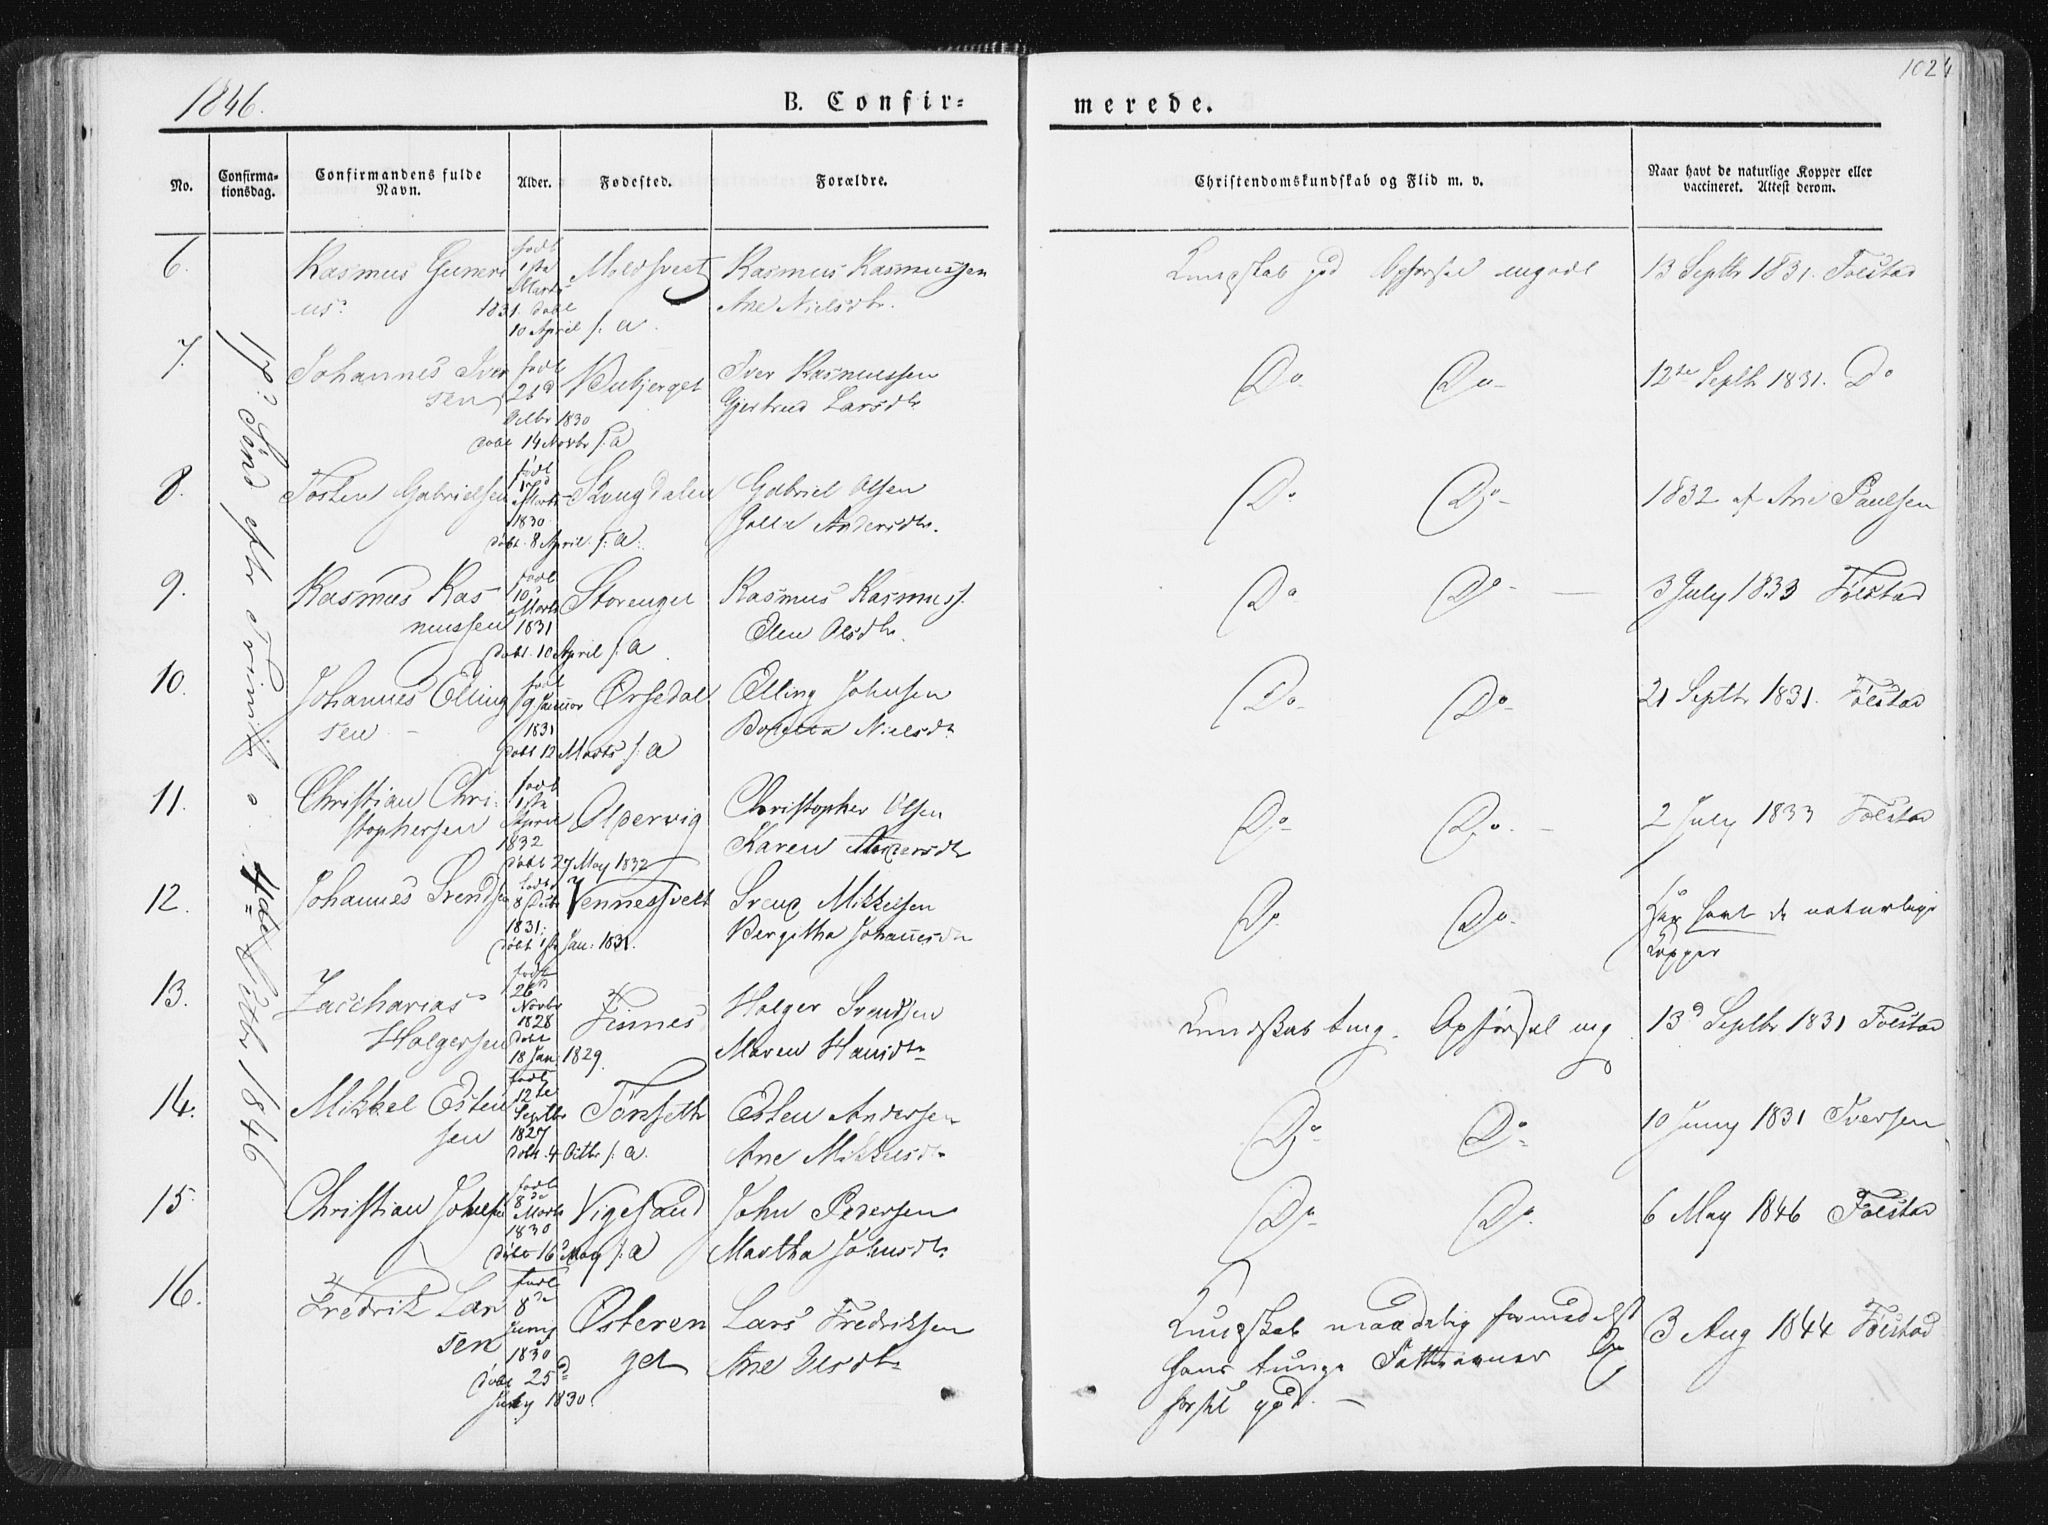 1846.
B. Confir=
merede.
102
No.
Confirma-
tionsdag.
Confirmandens fulde
Navn.
Alder.
Fødested.
Forældre.
Christendomskundskab og Flid m. v.
Naar havt de naturlige Kopper eller
vaccineret. Attest derom.
17de Sønd eft Trinit 4de Octbr 1846
6. Rasmus Guneri
us. født 1ste Marts 1831. døbt
10 April s: a.
Rasmus Rasmussen
Ane Nielsdtr.
Kundskab god Opførsel meget
13 Septbr 1831. Folstad
7. Johannes Iver
sen født Octbr 1830
døbt 14 Novbr s: a
Iver Rasmussen
Gjertrud Larsdtr
Do Do
12te Septbr 1831. Do
8. Tosten Gabrielsen født Marts 1830
døbt 8 April s: a:
Gabriel Olsen
Andersdtr.
Do Do
1832 af Ane Paulsen
9. Rasmus Ras
mussen født 10d Marts 1831
døbt 10 April s: a
Storenget
Rasmus Rasmuss.
Elen Olsdtr.
Do Do
3 July 1833 Folstad
10. Johannes Elling
sen født 9 Januar 1831
døbt 12 Marts s: a
Ørsedal
Elling Johnsen
Nielsdtr
Do Do
21 Septbr 1831. Folstad
11. Christian Chri-
stophersen født 1ste April 1832
døbt 27 May 1832
Oldervig
Christopher Olsen
Karen Andersdtr
Do Do
2 July 1833 Folstad
12. Johannes Svendsen født 8 1831.
døbt 1ste Jan: 1831.
Vennessvedt
Svend Mikkelsen
Bergitha Johannesdtr
Do Do
Har havt de naturlige
Kopper
13. Zaccharias
Holgersen født 26d Novbr 1828
døbt 18 Jan 1829.
Finnes
Holger Svendsen
Maren Hansdtr
Kundskab tmg. Opførsel mg
13d Septbr 1831 Folstad
14. Mikkel Esten
sen født 12te Septbr 1827
døbt 4 Octbr s: a.
Tønseth
Esten Andersen
Ane Mikkelsdtr
Do Do
10 Juny 1831 Iversen
15. Christian Johnsen født 8de Marts 1830
døbt 16d May s: a
Vigesaud
John Pedersen
Martha Johnsdtr
Do Do
6 May 1846 Folstad
16. Fredrik Lar
sen født 8de Juny 1830
døbt 25d
July 1830.
Østeren
get
Lars Fredriksen
Ane Olsdtr
Kundskab maadelig formedelst
hans tunge Op
førsel god.
3 Aug 1844 Folstad